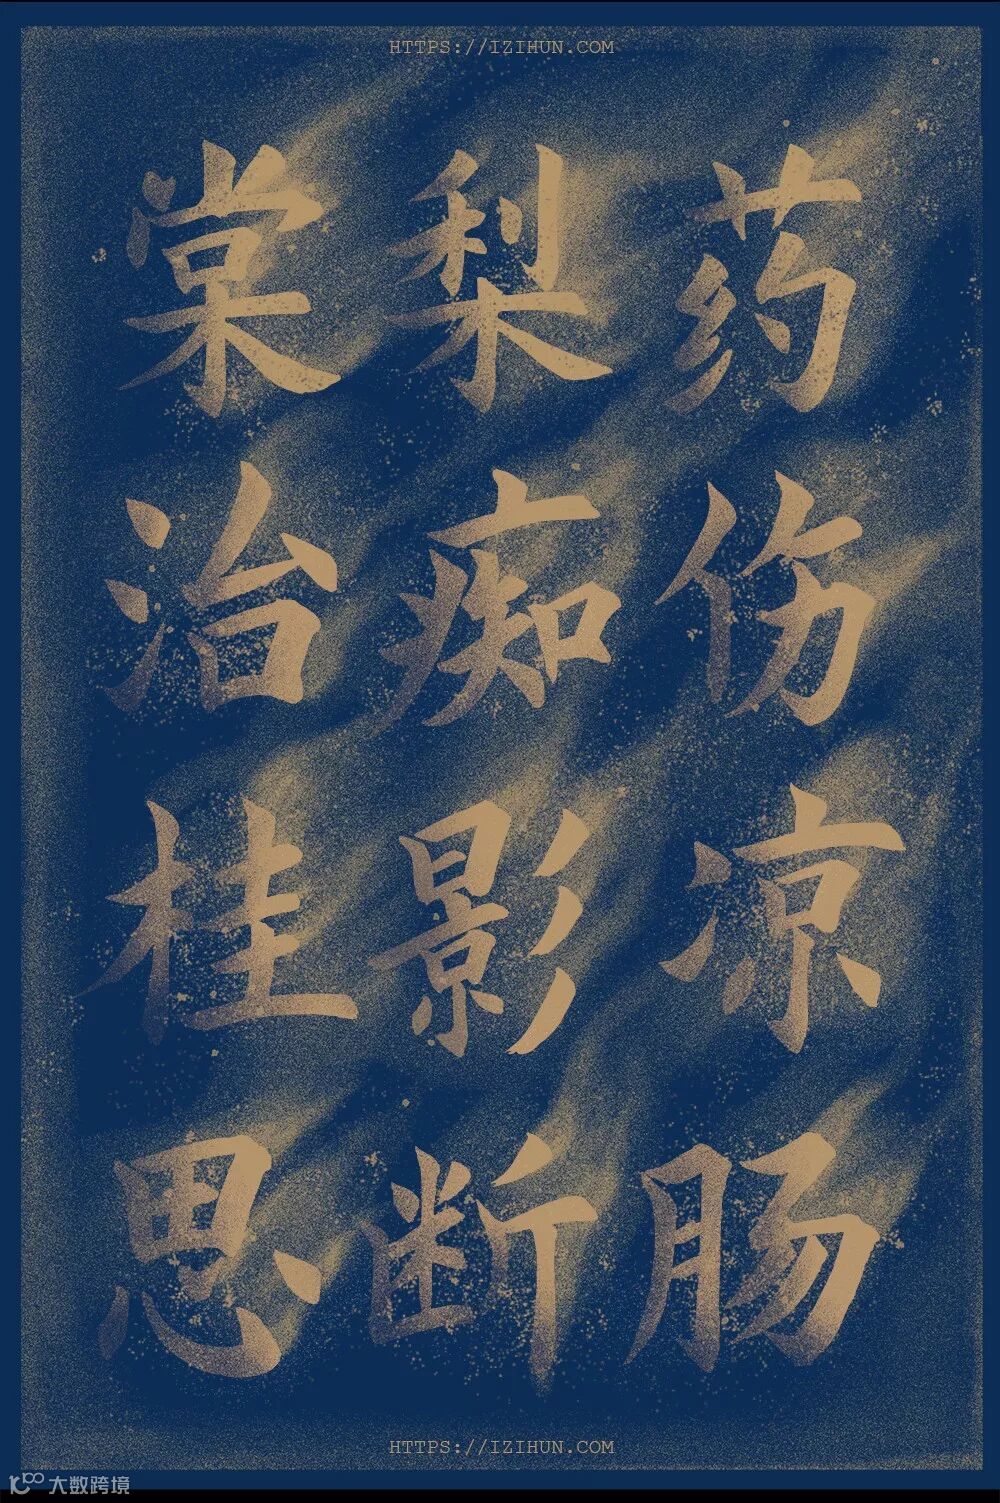 HTTPS://IZIHUN.COM
棠梨药
治痴伤
桂影凉
思断肠
HTTPS://IZIHUN.COM
大数跨境